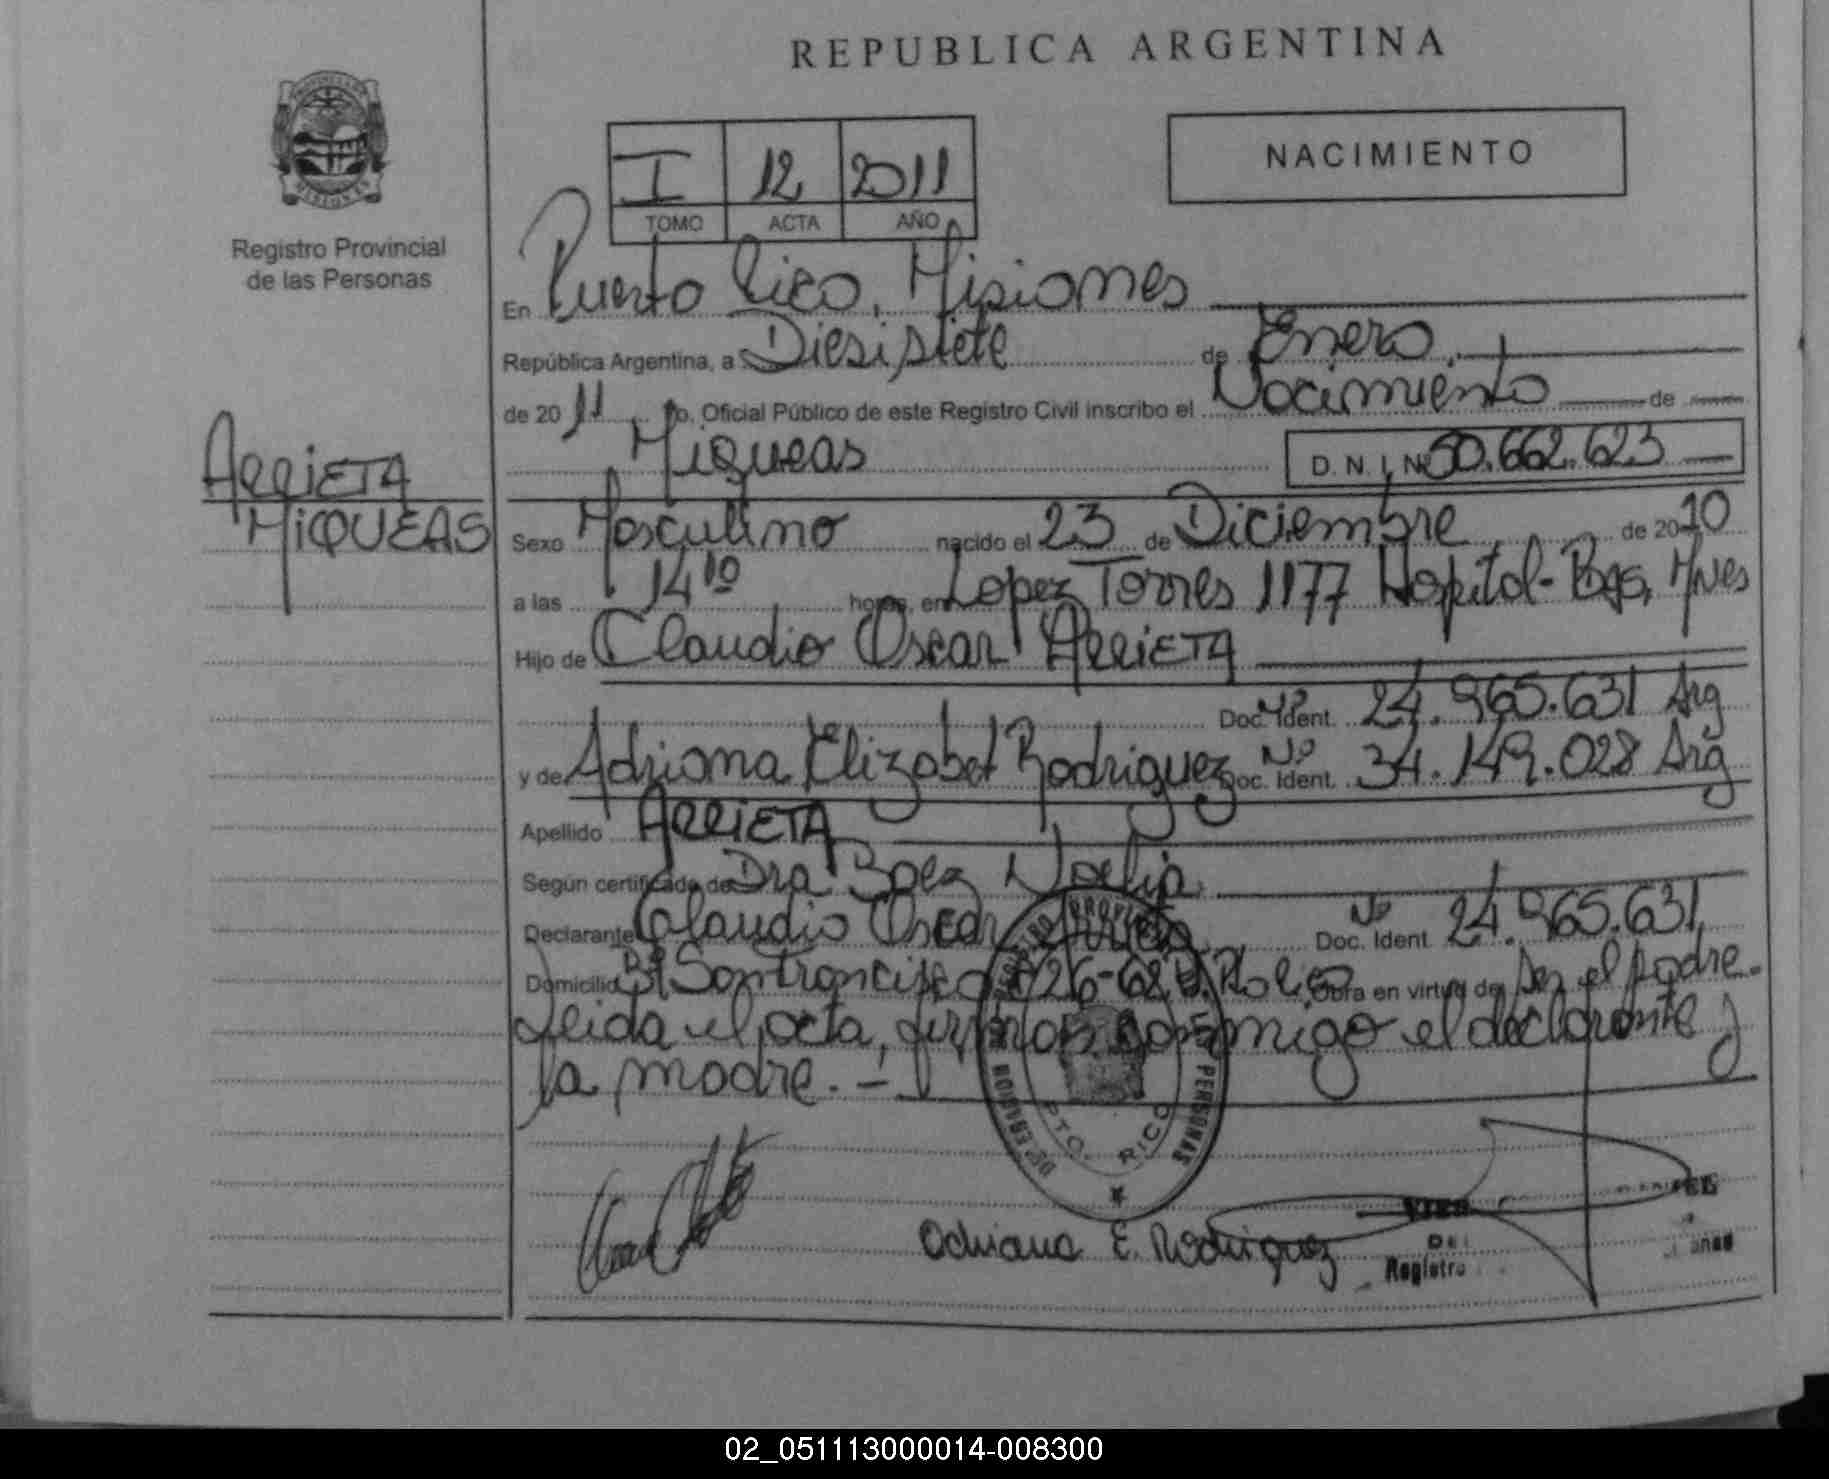 REPUBLICA ARGENTINA
NACIMIENTO
I 12 2011
TOMO ACTA AÑO
Registro Provincial
de las Personas
ARRIETA
MIQUEAS
En Puerto Rico, Misiones
República Argentina, a Diesisiete de Enero,
de 2011 Yo. Oficial Público de este Registro Civil inscribo el Nacimiento de
Miqueas D.N.I. Nº 50.662.623
Sexo Masculino nacido el 23 de Diciembre de 2010
a las 14 10 horas, en Lopez Torres 1177 Hospital - Pgs, Mnes
Hijo de Claudio Oscar ARRIETA
Doc. Ident. Nº 24.965.631 Arg
y de Adriana Elizabet Rodriguez Doc. Ident. Nº 34.149.028 Arg
Apellido ARRIETA
Según certificado de Dra Baez Noelia
Declarante Claudio Oscar Arrieta Doc. Ident Nº 24.965.631
Domicilio Bº San Francisco 026-62 P. Rico Obra en virtud de Ser el padre.
Leida el acta, firman conmigo el declarante y
la madre. -
REGISTRO PROVINCIAL DE LAS PERSONAS
PTO. RICO
Adriana E. Rodriguez
DEL
Registro
02_051113000014-008300